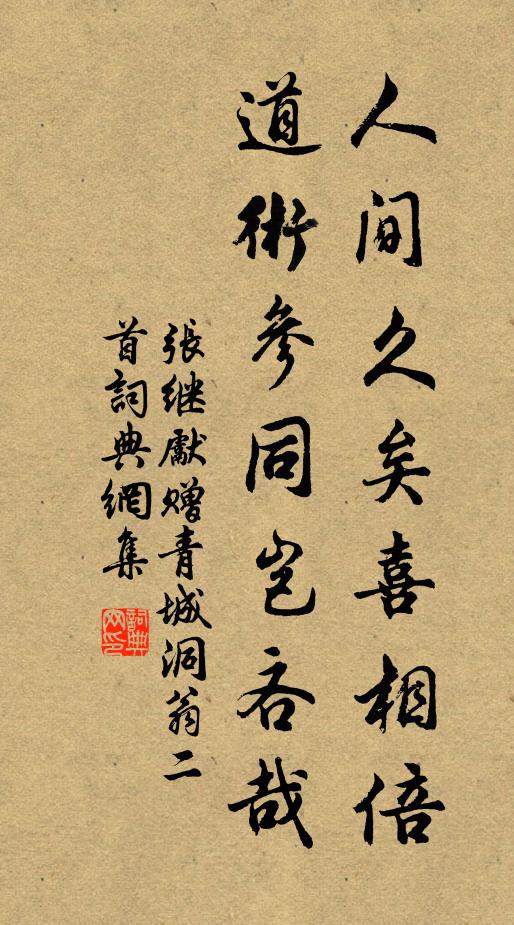 人间久矣喜相倍
道術參同豈吝哉
張继獻赠青城洞翁二
首詞典網集
詞典网印